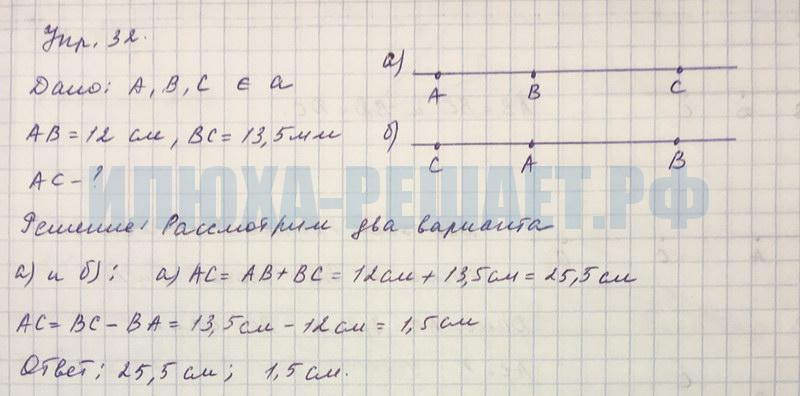 Упр. 32.
Дано: A, B, C ∈ a
AB = 12 см, BC = 13,5 мм
AC - ?
а)
A B C
б)
C A B
ИЛЮХА-РЕШАЕТ.РФ
Решение: Рассмотрим два варианта
а) и б): а) AC = AB + BC = 12 см + 13,5 см = 25,5 см
AC = BC - BA = 13,5 см - 12 см = 1,5 см
Ответ: 25,5 см; 1,5 см.